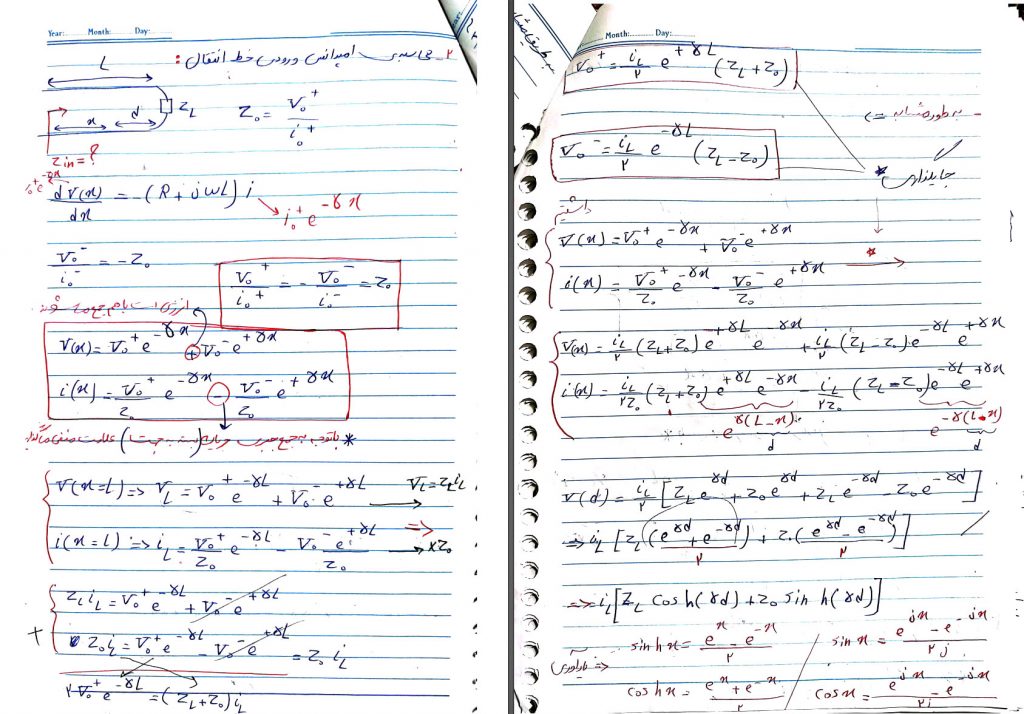 Year: Month: Day:
۲_ محاسبه‌ی امپدانس ورودی خط انتقال:
L
x d Z_L
Z₀ = V₀⁺ / i₀⁺
Z in = ?
dV(x)/dx = -(R + jωL) i
i₀⁺ e^{-γx}
V₀⁻ / i₀⁻ = -Z₀
V₀⁺ / i₀⁺ = - V₀⁻ / i₀⁻ = Z₀
V(x) = V₀⁺ e^{-γx} + V₀⁻ e^{+γx}
i(x) = V₀⁺/Z₀ e^{-γx} - V₀⁻/Z₀ e^{+γx}
* باتوجه به جمع جبری جریان (بسته به جهت) علامت منفی
V(x=L) => V_L = V₀⁺ e^{-γL} + V₀⁻ e^{+γL} V_L = Z_L i_L
i(x=L) => i_L = V₀⁺/Z₀ e^{-γL} - V₀⁻/Z₀ e^{+γL} => ×Z₀
Z_L i_L = V₀⁺ e^{-γL} + V₀⁻ e^{+γL}
+ Z₀ i_L = V₀⁺ e^{-γL} - V₀⁻ e^{+γL} = Z₀ i_L
۲V₀⁺ e^{-γL} = (Z_L + Z₀) i_L
Month: Day:
V₀⁺ = i_L/۲ e^{+γL} (Z_L + Z₀)
- به طور مشابه =>
V₀⁻ = i_L/۲ e^{-γL} (Z_L - Z₀)
* جایگذاری
داشتیم
V(x) = V₀⁺ e^{-γx} + V₀⁻ e^{+γx}
*
i(x) = V₀⁺/Z₀ e^{-γx} - V₀⁻/Z₀ e^{+γx}
V(x) = i_L/۲ (Z_L + Z₀) e^{+γL} e^{-γx} + i_L/۲ (Z_L - Z₀) e^{-γL} e^{+γx}
i(x) = i_L/۲Z₀ (Z_L + Z₀) e^{+γL} e^{-γx} - i_L/۲Z₀ (Z_L - Z₀) e^{-γL} e^{+γx}
e^{γ(L-x)} e^{-γ(L-x)}
d d
V(d) = i_L/۲ [Z_L e^{γd} + Z₀ e^{γd} + Z_L e^{-γd} - Z₀ e^{-γd}]
=> i_L [Z_L (e^{γd} + e^{-γd})/۲ + Z₀ (e^{γd} - e^{-γd})/۲]
=> i_L [Z_L cosh(γd) + Z₀ sinh(γd)]
یادآوری => sinhx = (e^x - e^{-x})/۲ / sinx = (e^{jx} - e^{-jx})/۲j
coshx = (e^x + e^{-x})/۲ / cosx = (e^{jx} - e^{-jx})/۲j